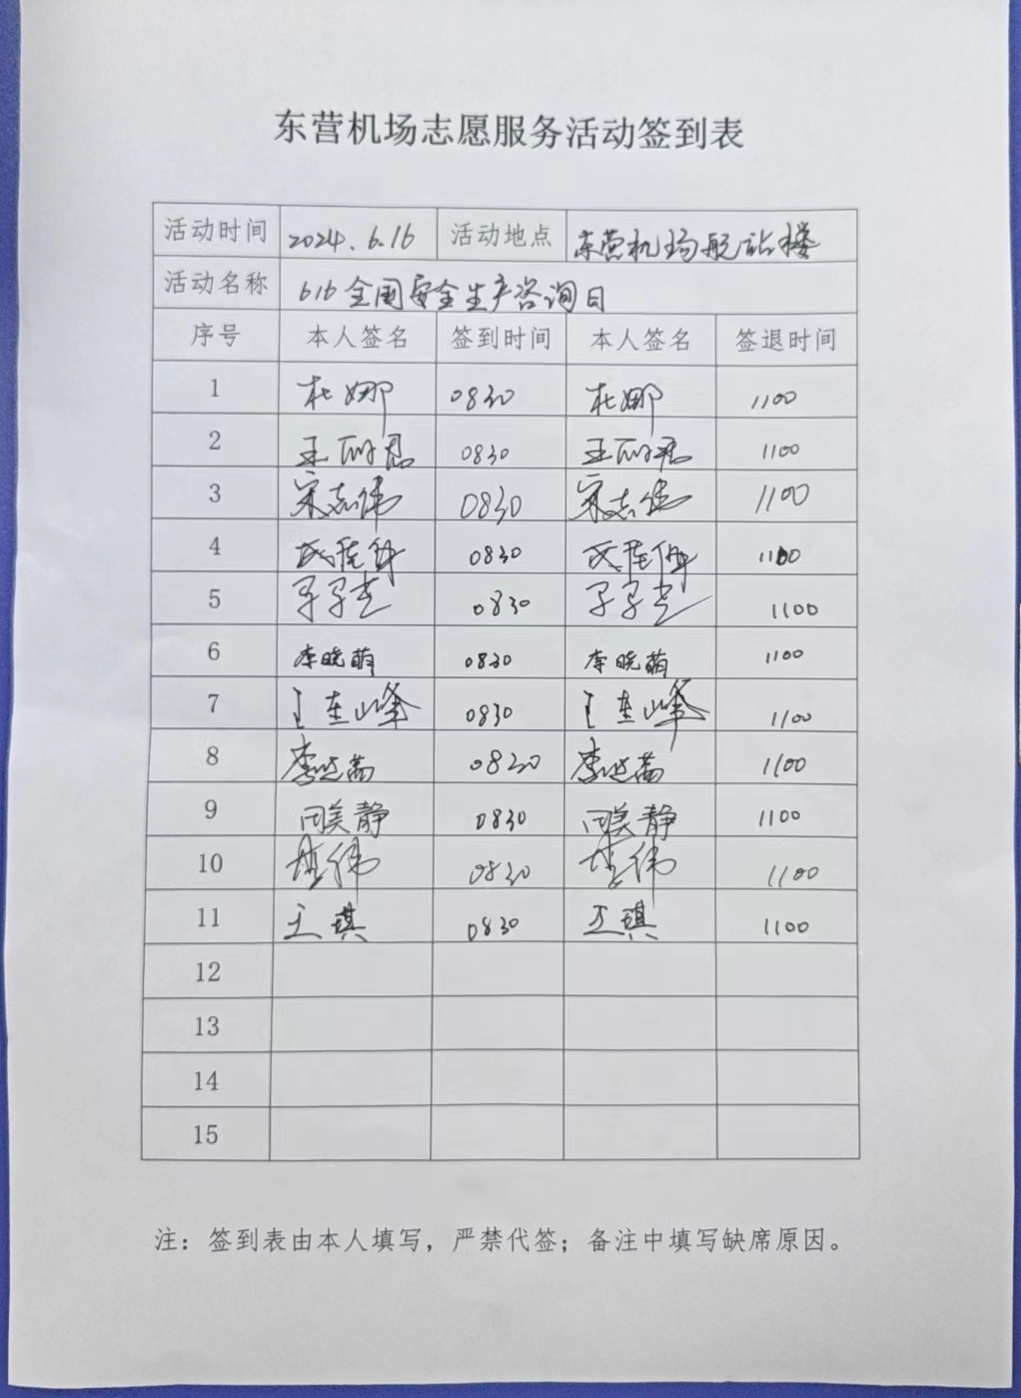 东营机场志愿服务活动签到表
活动时间 2024.6.16 活动地点 东营机场航站楼
活动名称 616全国安全生产咨询日
序号 本人签名 签到时间 本人签名 签退时间
1 杜娜 0830 杜娜 1100
2 王丽君 0830 王丽君 1100
3 宋志伟 0830 宋志伟 1100
4 0830 1100
5 0830 1100
6 李晓萌 0830 李晓萌 1100
7 峰 0830 峰 1100
8 李 0830 李 1100
9 闫美静 0830 闫美静 1100
10 伟 0830 伟 1100
11 王琪 0830 王琪 1100
12
13
14
15
注：签到表由本人填写，严禁代签；备注中填写缺席原因。